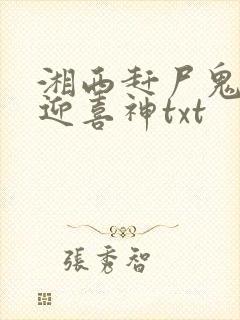 湘西赶尸鬼
迎喜神txt
張秀智